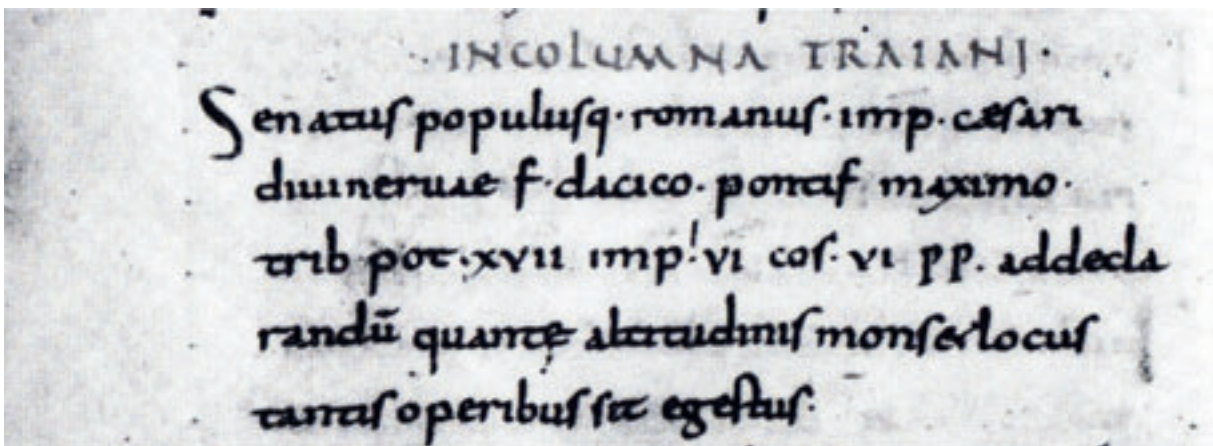 ·INCOLUMNA TRAIANI·
Senatus populusq· romanus· imp· cæsari
diuineruae f· dacico· pontif maximo·
trib pot·xvii imp·vi cos·vi pp· addecla
randū quantę altitudinis mons&locus
tantis operibus sit egestus·